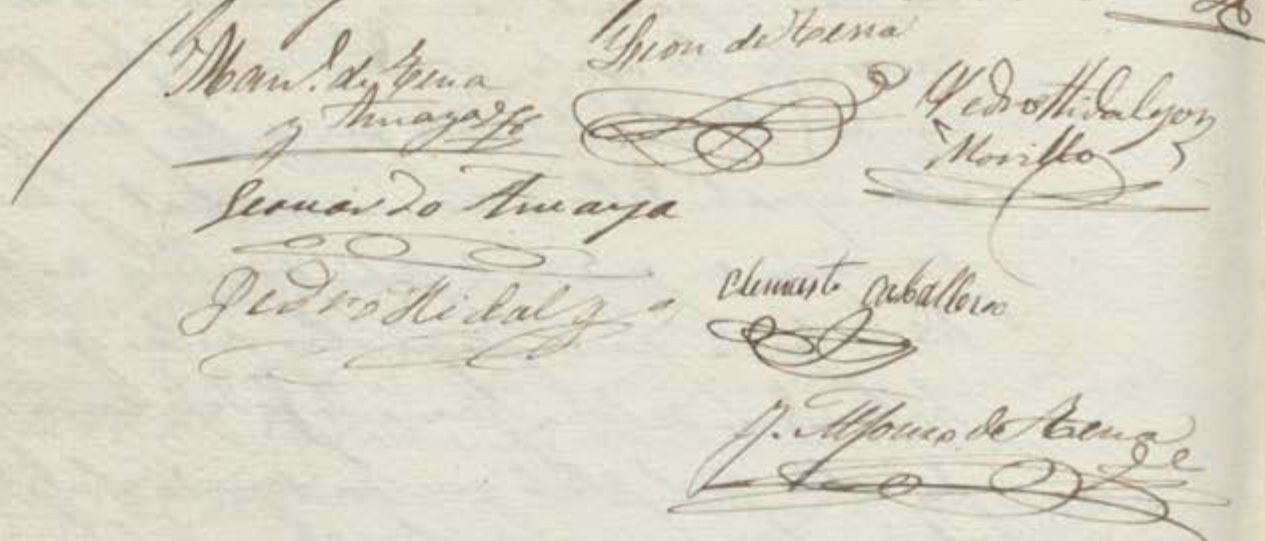 Man.l de Tena
y Amaya
Leon de Tena
Pedro Hidalgo y
Morillo
Leonardo Amaya
Pedro Hidalgo
Clemente Caballero
J. Alfonso de Tena